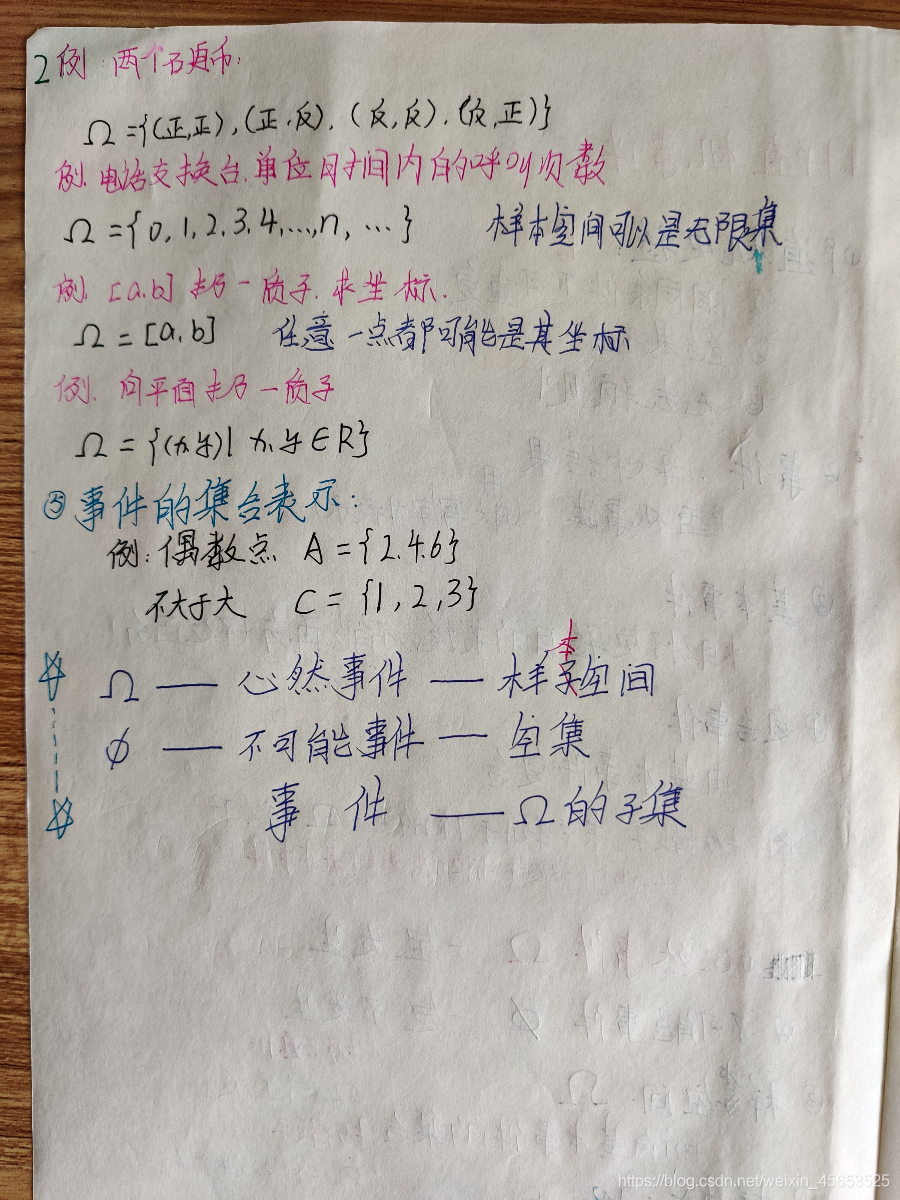 2 例:两个硬币:
Ω={(正,正),(正,反),(反,反),(反,正)}
例.电话交换台.单位时间内的呼叫次数
Ω={0,1,2,3,4,...,n,...} 样本空间可以是无限集
例.[a,b]扔一质子.求坐标.
Ω=[a,b] 任意一点都可能是其坐标
例.向平面扔一质子
Ω={(x,y)|x,y∈R}
⑤事件的集合表示:
例:偶数点 A={2.4.6}
不大于大 C={1,2,3}
Ω — 必然事件 — 样本空间
∅ — 不可能事件 — 空集
事件 — Ω的子集
https://blog.csdn.net/weixin_45653525